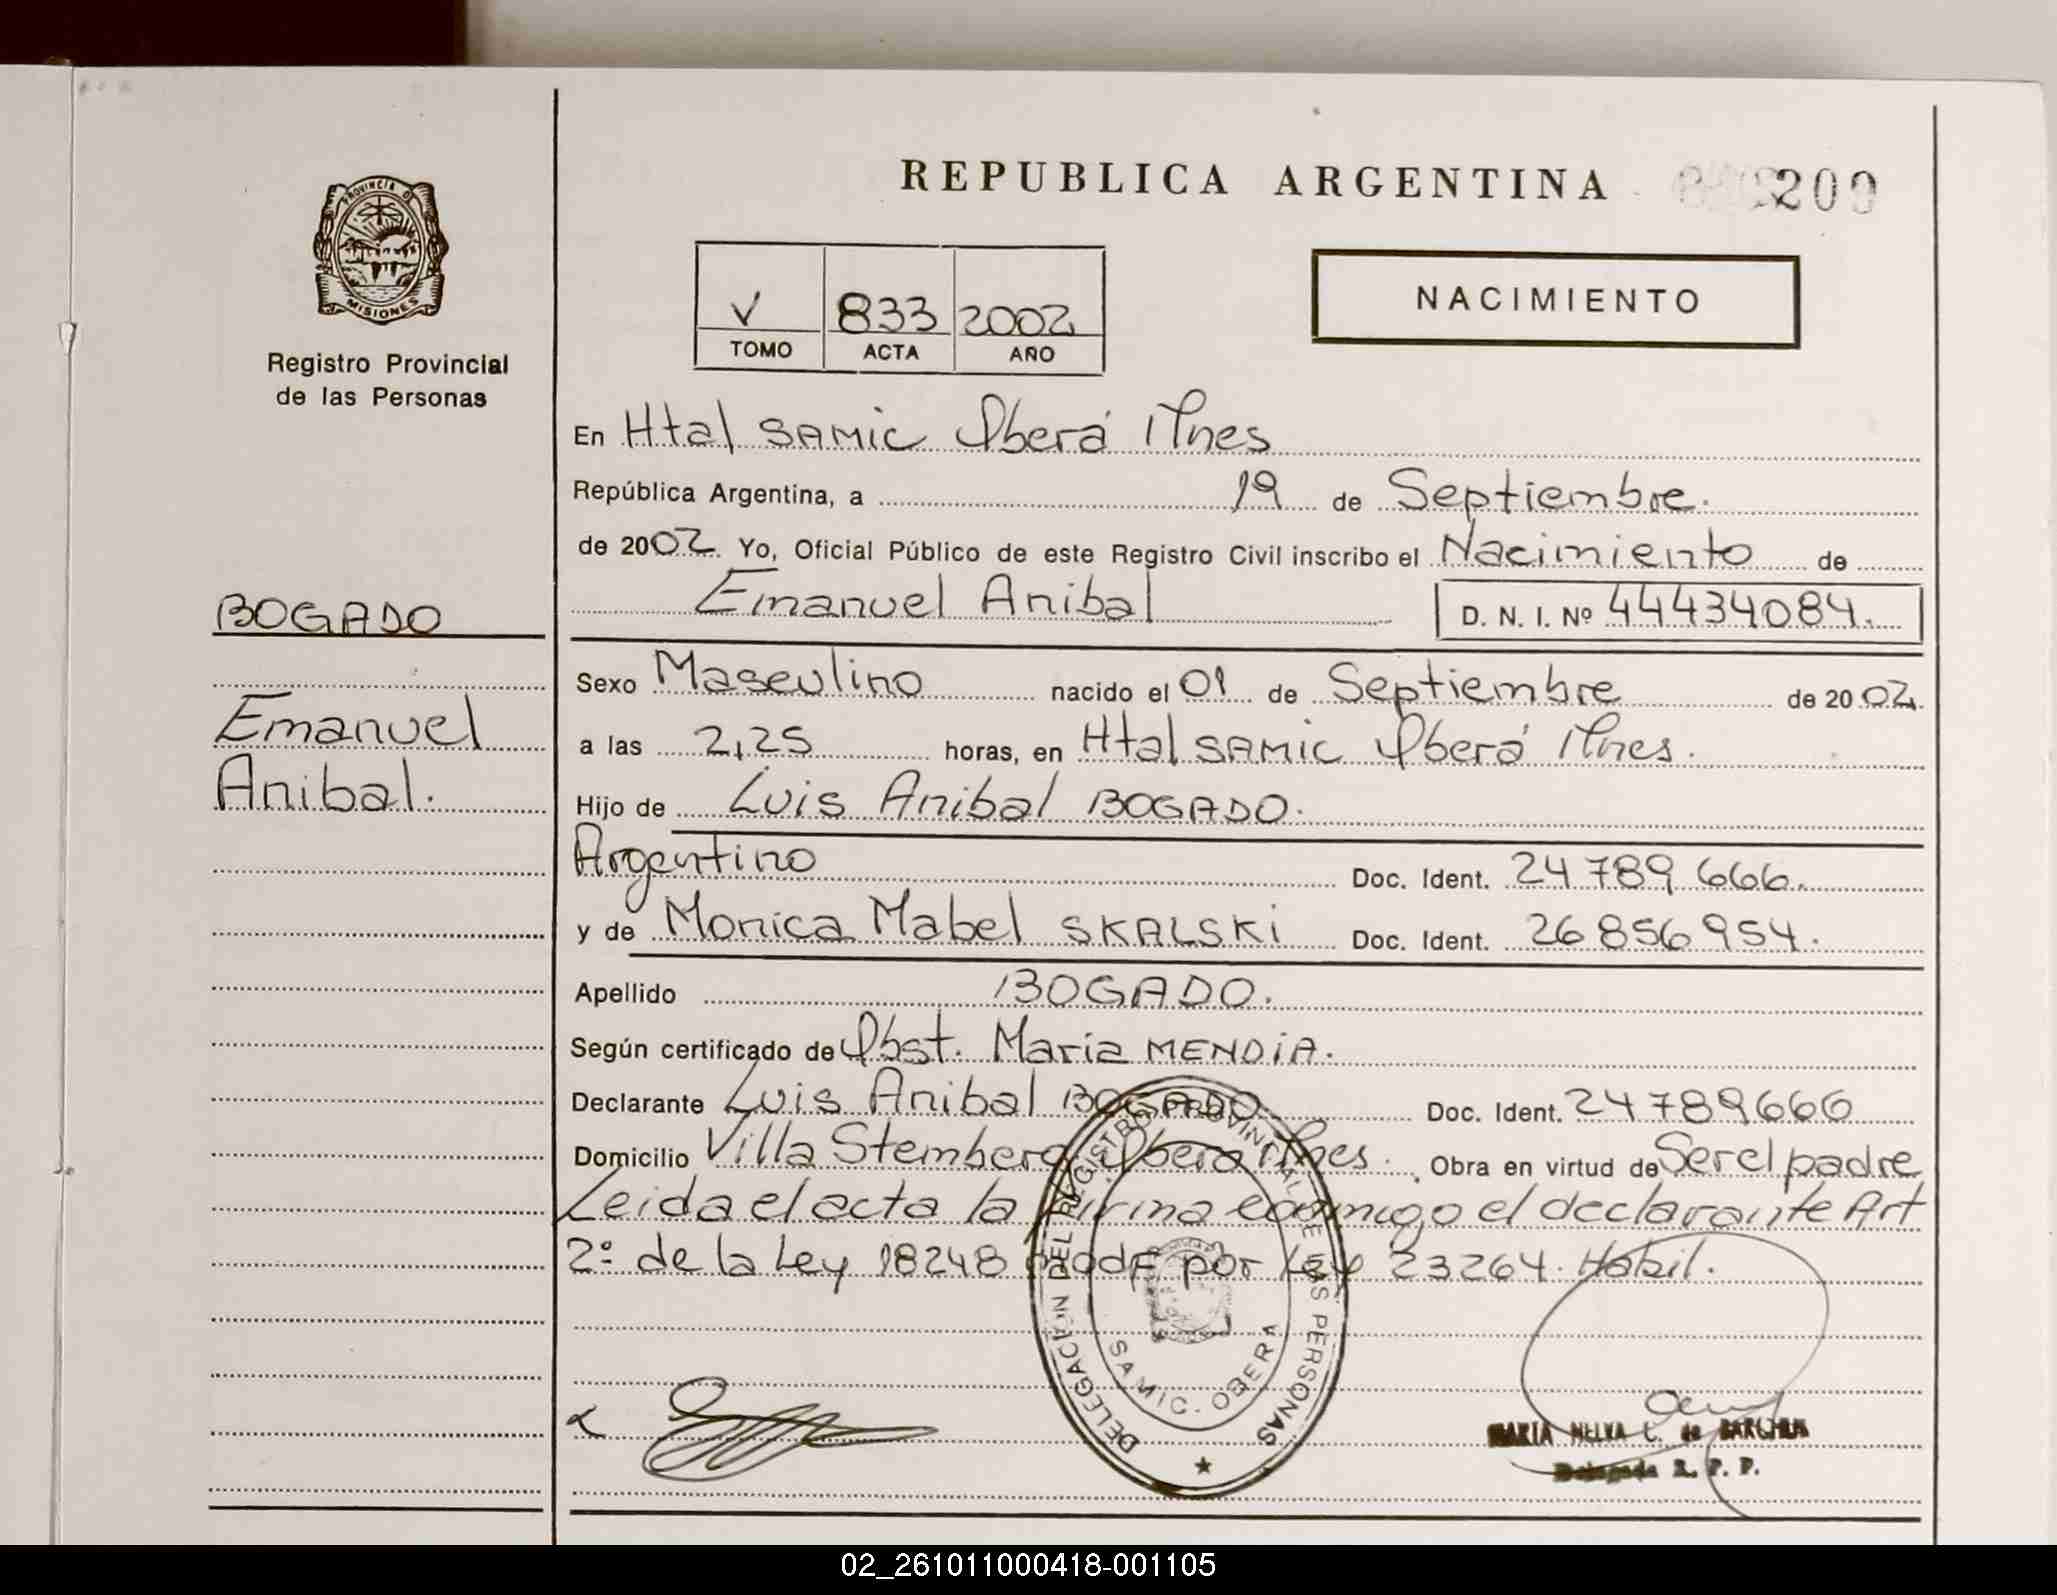 REPUBLICA ARGENTINA
200
PROVINCIA D
MISIONES
Registro Provincial
de las Personas
V 833 2002
TOMO ACTA AÑO
NACIMIENTO
En Htal SAMIC Oberá Mnes
República Argentina, a 19 de Septiembre.
de 2002. Yo, Oficial Público de este Registro Civil inscribo el Nacimiento de
Emanuel Anibal
D. N. I. Nº 44434084.
BOGADO
Emanuel
Anibal.
Sexo Masculino nacido el 01 de Septiembre de 2002.
a las 2,25 horas, en Htal SAMIC Oberá Mnes.
Hijo de Luis Anibal BOGADO.
Argentino Doc. Ident. 24789666.
y de Monica Mabel SKALSKI Doc. Ident. 26856954.
Apellido BOGADO.
Según certificado de Obst. Maria MENDIA.
Declarante Luis Anibal BOGADO Doc. Ident. 24789666
Domicilio Villa Stemberg Oberá Mnes. Obra en virtud de Ser el padre
Leida el acta la firma conmigo el declarante Art
2º de la Ley 18248 modf por Ley 23264. Habil.
DELEGACIÓN DEL REGISTRO PROVINCIAL DE LAS PERSONAS
SAMIC. OBERA
MARIA NELVA C. de
Delegada R. P. P.
02_261011000418-001105